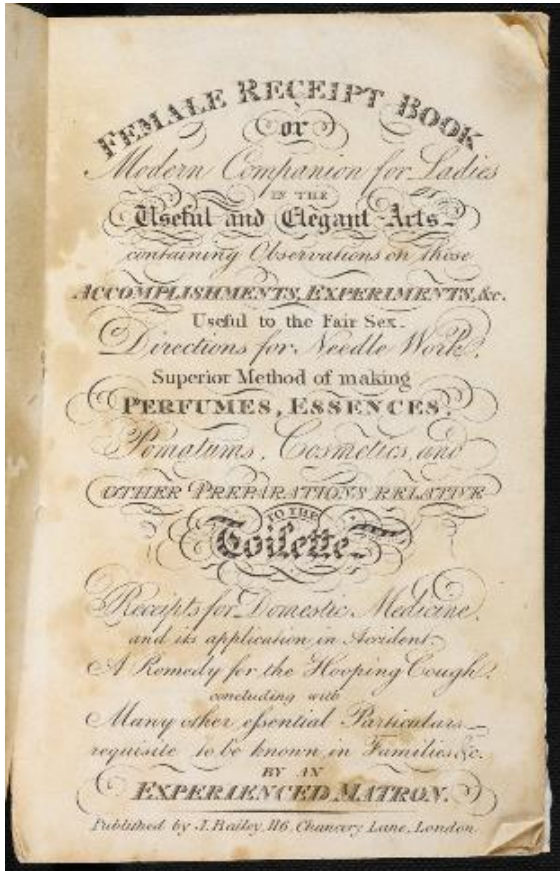 FEMALE RECEIPT BOOK
or
Modern Companion for Ladies
IN THE
Useful and Elegant Arts
containing Observations on those
ACCOMPLISHMENTS, EXPERIMENTS, &c.
Useful to the Fair Sex.
Directions for Needle Work,
Superior Method of making
PERFUMES, ESSENCES,
Pomatums, Cosmetics, and
OTHER PREPARATIONS RELATIVE
TO THE
Toilette
Receipts for Domestic Medicine,
and its application in Accident
A Remedy for the Hooping Cough,
concluding with
Many other essential Particulars
requisite to be known in Families &c.
BY AN
EXPERAENCED MATRON.
Published by J. Bailey, 116, Chancery Lane, London.